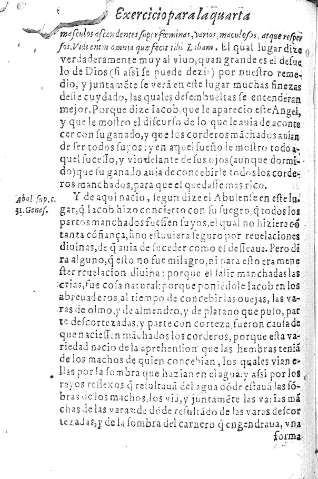 Exercicio para la quarta
masculos ascendentes super fœminas, varios, maculosos, atque respersos
sos. Vidi enim omnia quæ fecit tibi Laban. El qual lugar dize
verdaderamente muy al viuo, quan grande es el desue
lo de Dios (si assi se puede dezir) por nuestro reme-
dio, y juntamẽte se verá en este lugar muchas finezas
deste cuydado, las quales desembueltas se entenderan
mejor. Porque dize Iacob, que le aparecio este Angel,
y que le mostro el discurso de lo que le auia de aconte
cer con su ganado, y que los corderos mãchados auian
de ser todos suyos: y en aquel sueño le mostro todo a-
quel sucesso, y vio delante de sus ojos (aunque dormi-
do) que su ganado auia de concebirle todos los corde-
ros manchados, para que el quedasse mas rico.
Y de aqui nacio, segun dize el Abulense en este lu-
Abul. sup. c.
gar, q̃ Iacob hizo concierto con su suegro, q̃ todos los
31. Genes.
partos manchados fuessen suyos, el qual no hiziera cõ
tanta cõfiança, sino estuuiera seguro por reuelaciones
diuinas, de q̃ auia de suceder como el desseaua. Pero di
ra alguno, q̃ esto no fue milagro, ni para esto era mene
ster reuelacion diuina: porque el salir manchadas las
crias, fue cosa natural: porque poniẽdole Iacob en los
abreuaderos, al tiempo de concebir las ouejas, las va-
ras de olmo, y de almendro, y de platano que puso, par
te descortezadas, y parte con corteza, fueron causa de
que naciessen mãchados los corderos, porque esta va-
riedad nacio de la aprehension que las hembras teniã
de los machos de quien concebian, los quales vian e-
llas por la sombra que hazian en el agua: y assi por los
rayos reflexos q̃ resultauã del agua dõde estauã las sõ-
bras de los machos, los viã, y juntamẽte las varias mã
chas de las varas: de dõde resultãdo de las varas descor
tezadas, y de la sombra del carnero q̃ engendraua, vna
forma